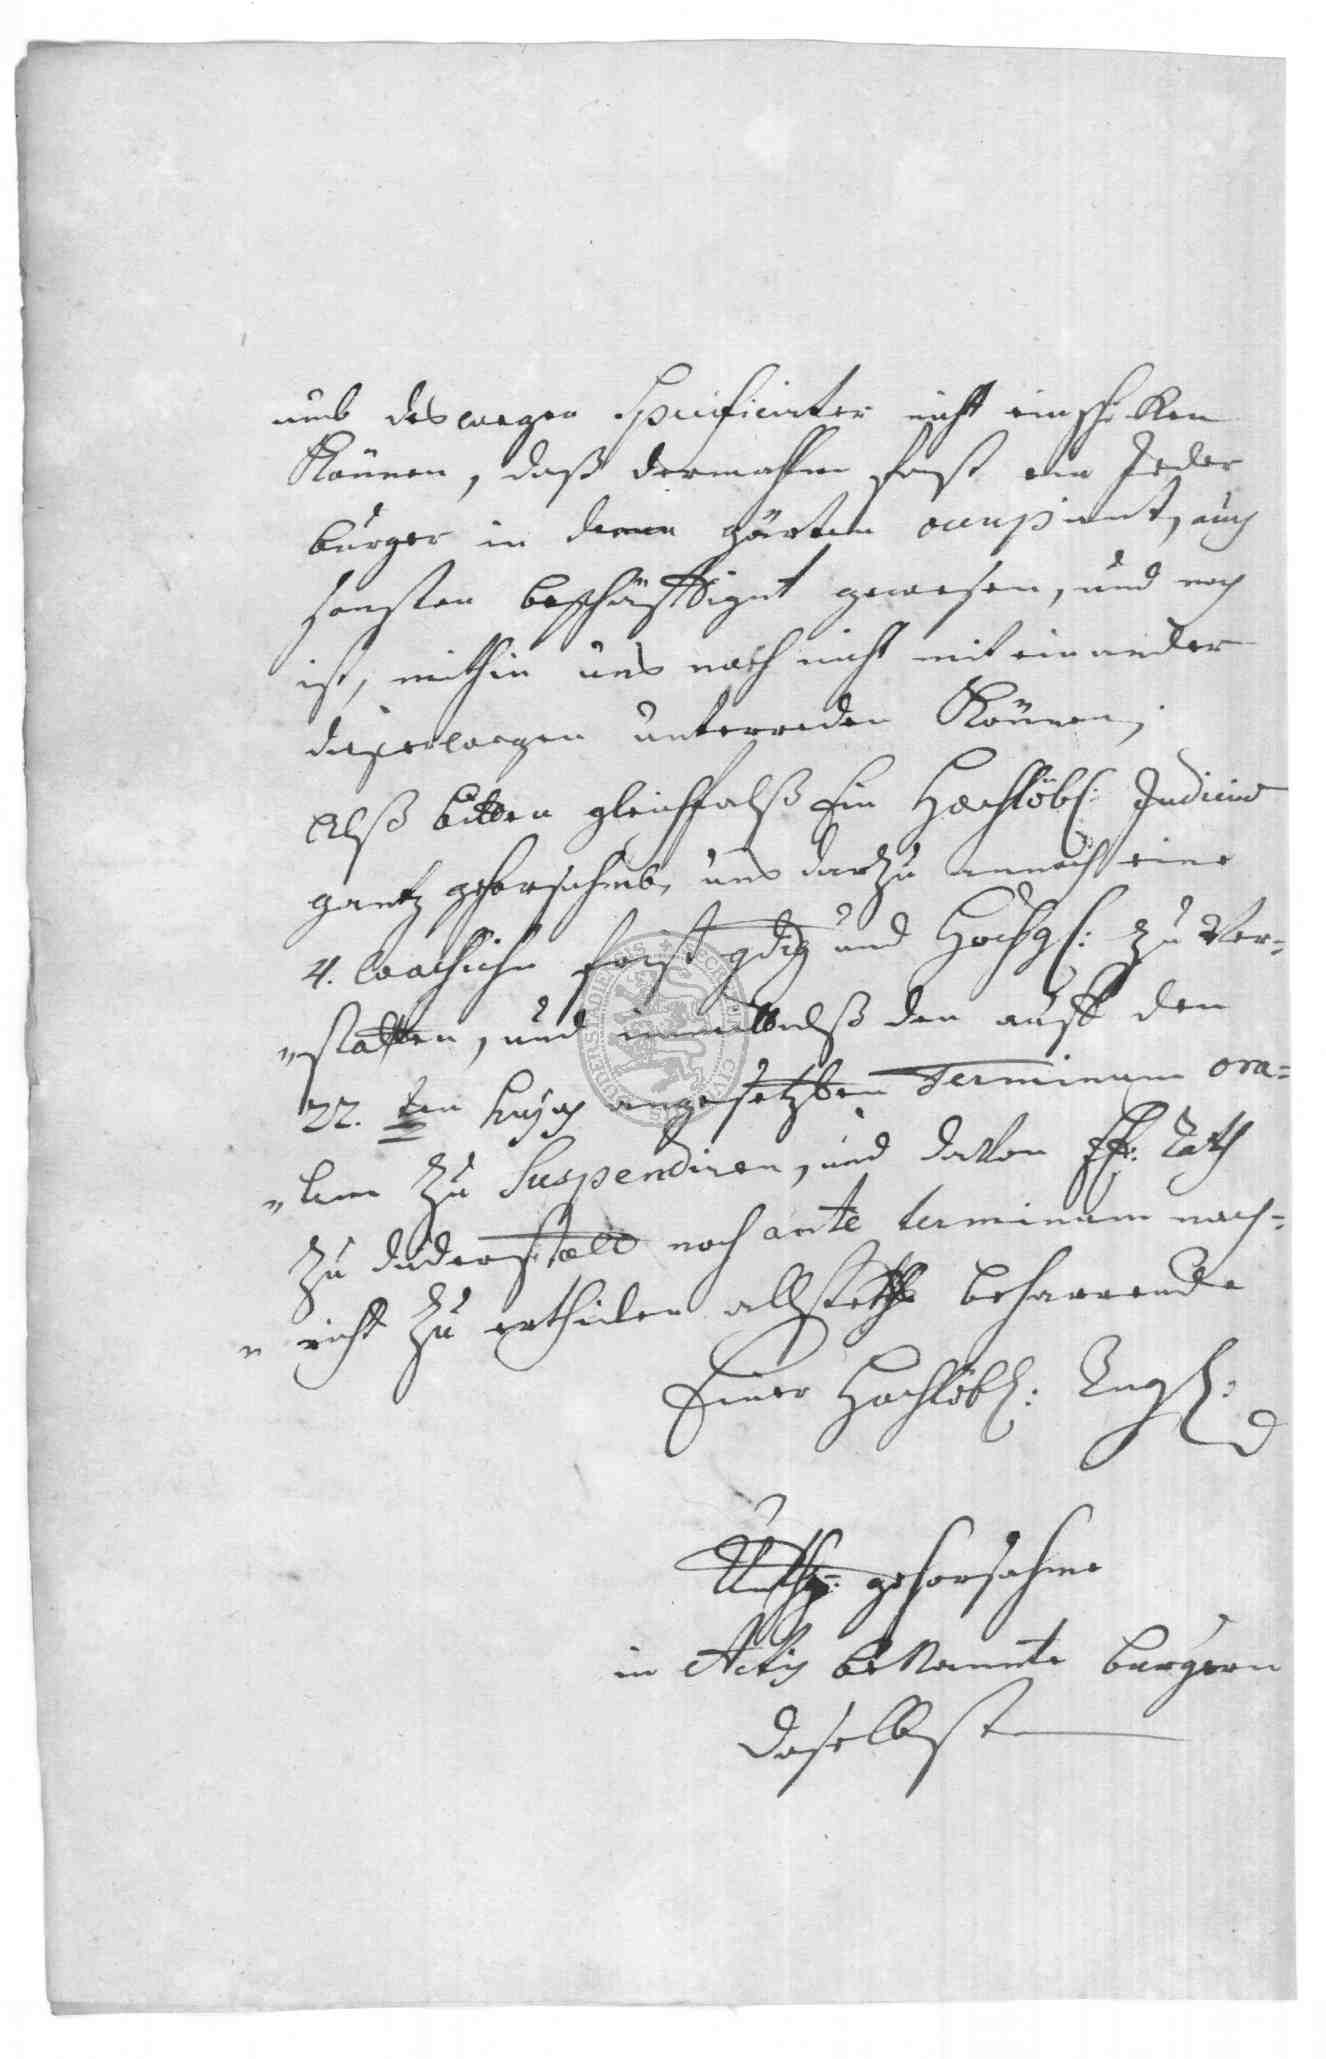 umb deswegen Specificirter nicht einschicken
Können, daß dermahlen fast ein Jeder
burger in denen gärten occupirt, auch
sonsten beschäfftiget gewesen, und noch
ist, mithin uns noch nicht mit einander
dieserwegen unterreden Können,
Alß bitten gleichfalß Ein Hochlöbl: Judicium
gantz gehorsahmb, uns darzu annoch eine
4. wochiche frist gdig und Hochgl: zu Ver=
"statten, und immittelß den auff den
22. ten hujus angesetzten Terminum ora=
"lem zu Suspendiren, und davon Rath
zu duderstatt noch ante terminum nach=
"richt zu ertheilen allstets beharrende
Einer Hochlöbl:
Unthg: gehorsahme
in Actis bekannte burgern
daselbst